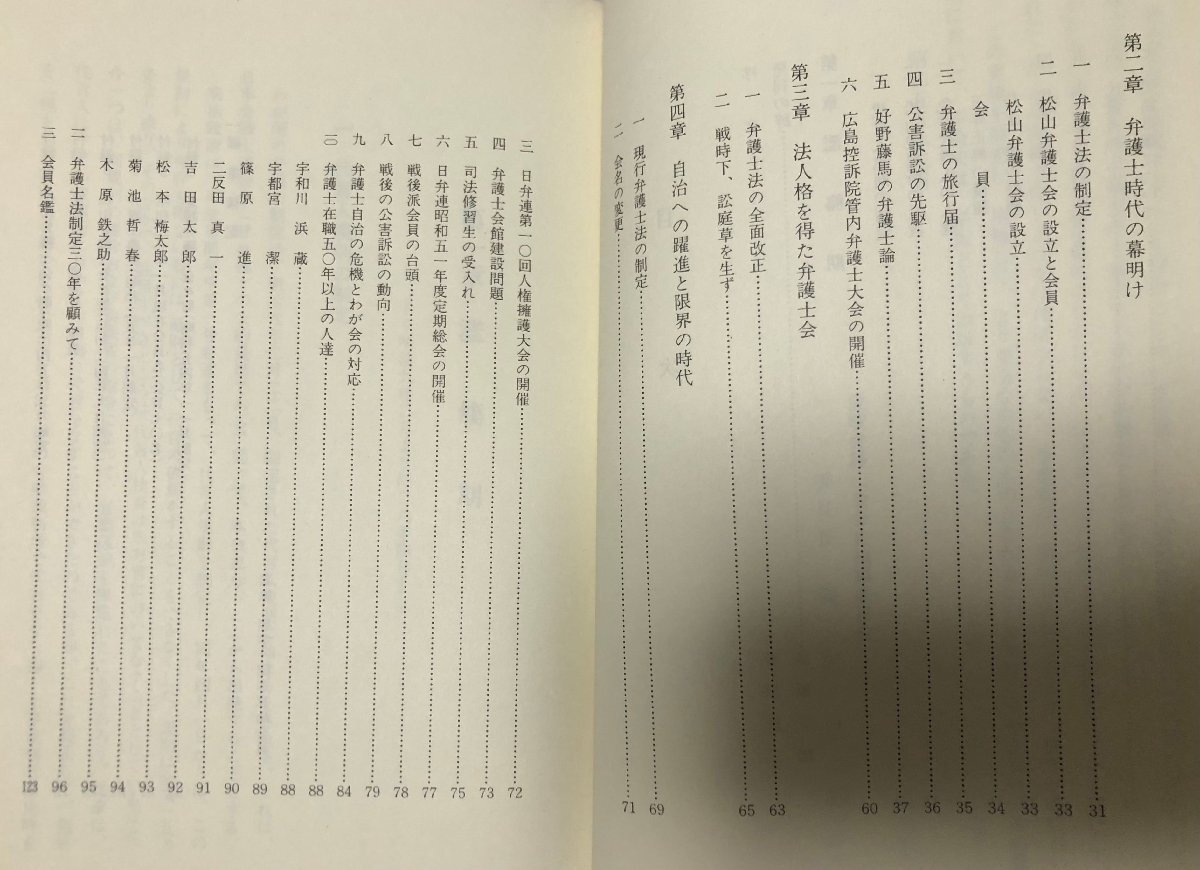 第二章　弁護士時代の幕明け
一　弁護士法の制定……31
二　松山弁護士会の設立と会員……33
松山弁護士会の設立……33
会　員……34
三　弁護士の旅行届……35
四　公害訴訟の先駆……36
五　好野藤馬の弁護士論……37
六　広島控訴院管内弁護士大会の開催……60
第三章　法人格を得た弁護士会
一　弁護士法の全面改正……63
二　戦時下、訟庭草を生ず……65
第四章　自治への躍進と限界の時代
一　現行弁護士法の制定……69
二　会名の変更……71
三　日弁連第一〇回人権擁護大会の開催……72
四　弁護士会館建設問題……73
五　司法修習生の受入れ……75
六　日弁連昭和五一年度定期総会の開催……77
七　戦後派会員の台頭……78
八　戦後の公害訴訟の動向……79
九　弁護士自治の危機とわが会の対応……84
一〇　弁護士在職五〇年以上の人達……88
宇和川　浜　蔵……88
宇都宮　　潔……89
篠　原　　進……90
二反田　真　一……91
吉　田　太　郎……92
松　本　梅太郎……93
菊　池　哲　春……94
木　原　鉄之助……95
一一　弁護士法制定三〇年を顧みて……96
一二　会員名鑑……123